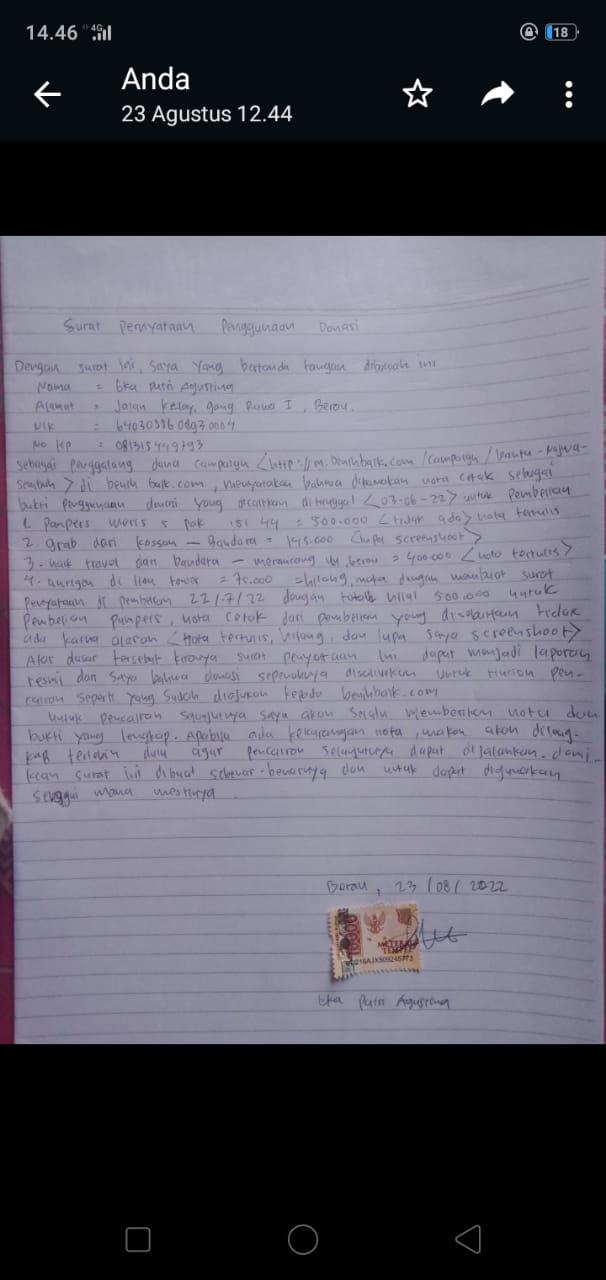 14.46 4G 18
Anda
23 Agustus 12.44
Surat Pernyataan Penggunaan Donasi
Dengan surat ini, saya yang bertanda tangan dibawah ini
Nama = Eka Putri Agustina
Alamat = Jalan Kelay, gang Rawa I, Berau.
NIK =
No HP = 081315449793
sebagai penggalang dana campaign <http://m.benihbaik.com/campaign/bantu-najwa-
sembuh> di benih baik.com, menyatakan bahwa dikarnakan nota cetak sebagai
bukti penggunaan donasi yang dicairkan ditanggal <03-06-22> untuk pembelian
1. Pampers meris 5 pak isi 44 = 500.000 <tidak ada> nota tertulis
2. grab dari kossan - Bandara = 145.000 <lupa screenshoot>
3. naik travel dari bandara - berau = 400.000 <nota tertulis>
4. di = 75.000 = hilang, maka dengan membuat surat
Penyataan di pembelian 22/7/22 dengan total nilai 500.000 untuk
Pembelian pampers, nota cetak dari pembelian yang disebutkan tidak
ada karna alasan <Nota tertulis, hilang, dan lupa saya screenshoot>
Atas dasar tersebut kiranya surat penyataan ini dapat menjadi laporan
resmi dan saya bahwa donasi sepenuhnya disalurkan untuk rincian pen-
cairan seperti yang sudah diajukan kepada benihbaik.com
Untuk pencairan selanjutnya saya akan selalu memberikan nota dan
bukti yang lengkap. Apabila ada kekurangan nota, maka akan dileng-
kapi dulu agar pencairan selanjutnya dapat dijalankan. demi-
kian surat ini dibuat sebenar-benarnya dan untuk dapat digunakan
mana mestinya.
Berau, 23/08/2022
10000
METERAI
TEMPEL
Eka Putri Agustina